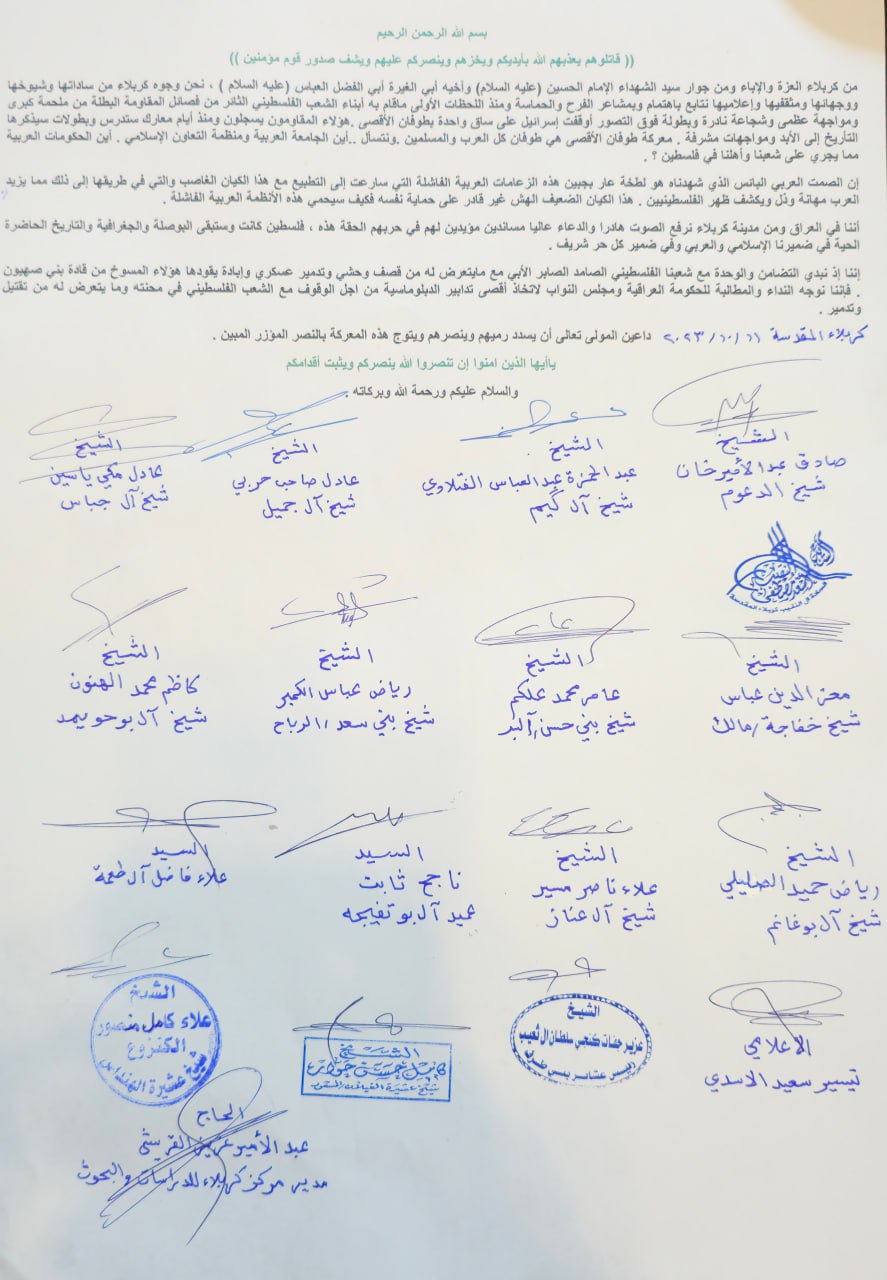 بسم الله الرحمن الرحيم
(( قاتلوهم يعذبهم الله بأيديكم ويخزهم وينصركم عليهم ويشف صدور قوم مؤمنين ))
من كربلاء العزة والإباء ومن جوار سيد الشهداء الإمام الحسين (عليه السلام) وأخيه أبي الغيرة أبي الفضل العباس (عليه السلام ) ، نحن وجوه كربلاء من ساداتها وشيوخها
ووجهائها ومثقفيها وإعلاميها نتابع باهتمام وبمشاعر الفرح والحماسة ومنذ اللحظات الأولى ماقام به أبناء الشعب الفلسطيني الثائر من فصائل المقاومة البطلة من ملحمة كبرى
ومواجهة عظمى وشجاعة نادرة وبطولة فوق التصور أوقفت إسرائيل على ساق واحدة بطوفان الأقصى .هؤلاء المقاومون يسجلون ومنذ أيام معارك ستدرس وبطولات سيذكرها
التأريخ إلى الأبد ومواجهات مشرفة . معركة طوفان الأقصى هي طوفان كل العرب والمسلمين .ونتسأل ..أين الجامعة العربية ومنظمة التعاون الإسلامي . أين الحكومات العربية
مما يجري على شعبنا وأهلنا في فلسطين ؟ .
إن الصمت العربي البائس الذي شهدناه هو لطخة عار بجبين هذه الزعامات العربية الفاشلة التي سارعت إلى التطبيع مع هذا الكيان الغاصب والتي في طريقها إلى ذلك مما يزيد
العرب مهانة وذل ويكشف ظهر الفلسطينيين . هذا الكيان الضعيف الهش غير قادر على حماية نفسه فكيف سيحمي هذه الأنظمة العربية الفاشلة .
أننا في العراق ومن مدينة كربلاء نرفع الصوت هادرا والدعاء عاليا مساندين مؤيدين لهم في حربهم الحقة هذه ، فلسطين كانت وستبقى البوصلة والجغرافية والتاريخ الحاضرة
الحية في ضميرنا الإسلامي والعربي وفي ضمير كل حر شريف .
إننا إذ نبدي التضامن والوحدة مع شعبنا الفلسطيني الصامد الصابر الأبي مع مايتعرض له من قصف وحشي وتدمير عسكري وإبادة يقودها هؤلاء المسوخ من قادة بني صهيون
. فإننا نوجه النداء والمطالبة للحكومة العراقية ومجلس النواب لاتخاذ أقصى تدابير الدبلوماسية من اجل الوقوف مع الشعب الفلسطيني في محنته وما يتعرض له من تقتيل
وتدمير .
كربلاء المقدسة ٢٠٢٣/١٠/١١ داعين المولى تعالى أن يسدد رميهم وينصرهم ويتوج هذه المعركة بالنصر المؤزر المبين .
ياأيها الذين امنوا إن تنصروا الله ينصركم ويثبت أقدامكم
والسلام عليكم ورحمة الله وبركاته .
الشيخ
صادق عبد الأمير خان
شيخ الدعوم
الشيخ
عبد الحمزة عبد العباس الفتلاوي
شيخ آل گيم
الشيخ
عادل صاحب حربي
شيخ آل جميل
الشيخ
عادل مكي ياسين
شيخ آل جباس
الشيخ
معز الدين عباس
شيخ خفاجة/مالك
الشيخ
عامر محمد علكم
شيخ بني حسن
الشيخ
رياض عباس الكمير
شيخ بني سعد / الرباح
الشيخ
كاظم محمد الهنون
شيخ آل بو حويمد
الشيخ
رياض حميد الصليلي
شيخ آل بو غانم
الشيخ
علاء ناصر مسير
شيخ آل عناز
السيد
ناجح ثابت
عميد آل بو تفيجه
السيد
علاء فاضل آل طعمة
الاعلامي
تيسير سعيد الاسدي
الشيخ
عزيز جفات كنجي سلطان ال ثعيب
الشيخ
الشيخ
علاء كامل منصور
الكنزوع
الحاج
عبد الأمير عزيز القريشي
مدير مركز كربلاء للدراسات والبحوث